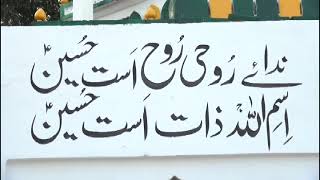 ندائے رُوحی رُوح اَست حُسینؑ
اِسمِ اللہ ذات اَست حُسینؑ